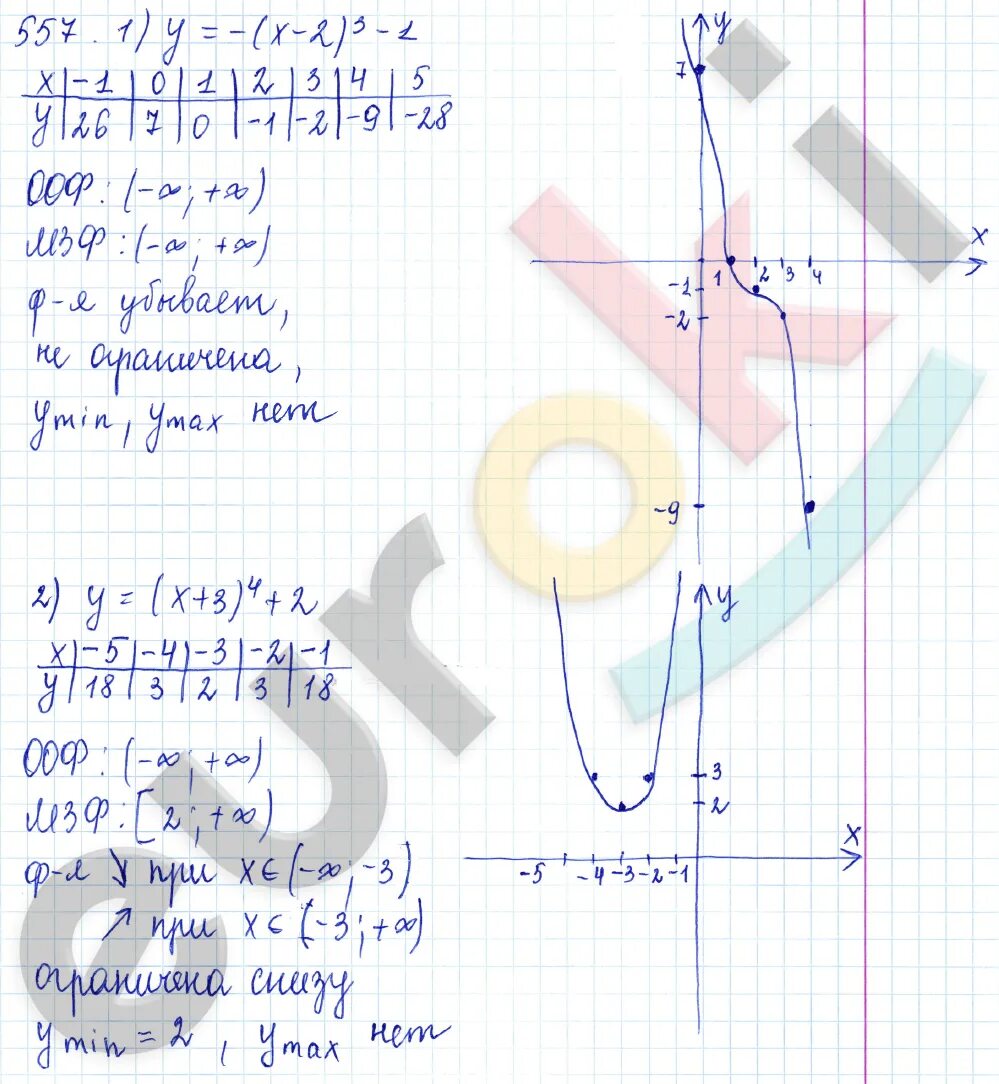 557. 1) y = -(x-2)³ - 1
x | -1 | 0 | 1 | 2 | 3 | 4 | 5
y | 26 | 7 | 0 | -1 | -2 | -9 | -28
ООФ: (-∞; +∞)
МЗФ: (-∞; +∞)
ф-я убывает,
не ограничена,
ymin, ymax нет
y
7
x
1 2 3 4
-1
-2
-9
2) y = (x+3)⁴ + 2
x | -5 | -4 | -3 | -2 | -1
y | 18 | 3 | 2 | 3 | 18
ООФ: (-∞; +∞)
МЗФ: [2; +∞)
ф-я ↘ при x∈(-∞; -3)
↗ при x∈(-3; +∞)
ограничена снизу
ymin = 2, ymax нет
y
3
2
x
-5 -4 -3 -2 -1
euroki